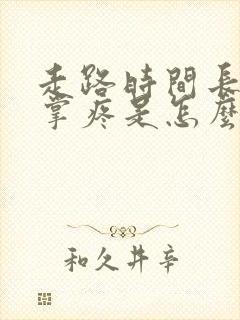 走路時間長
掌疼是怎麼
和久井辛